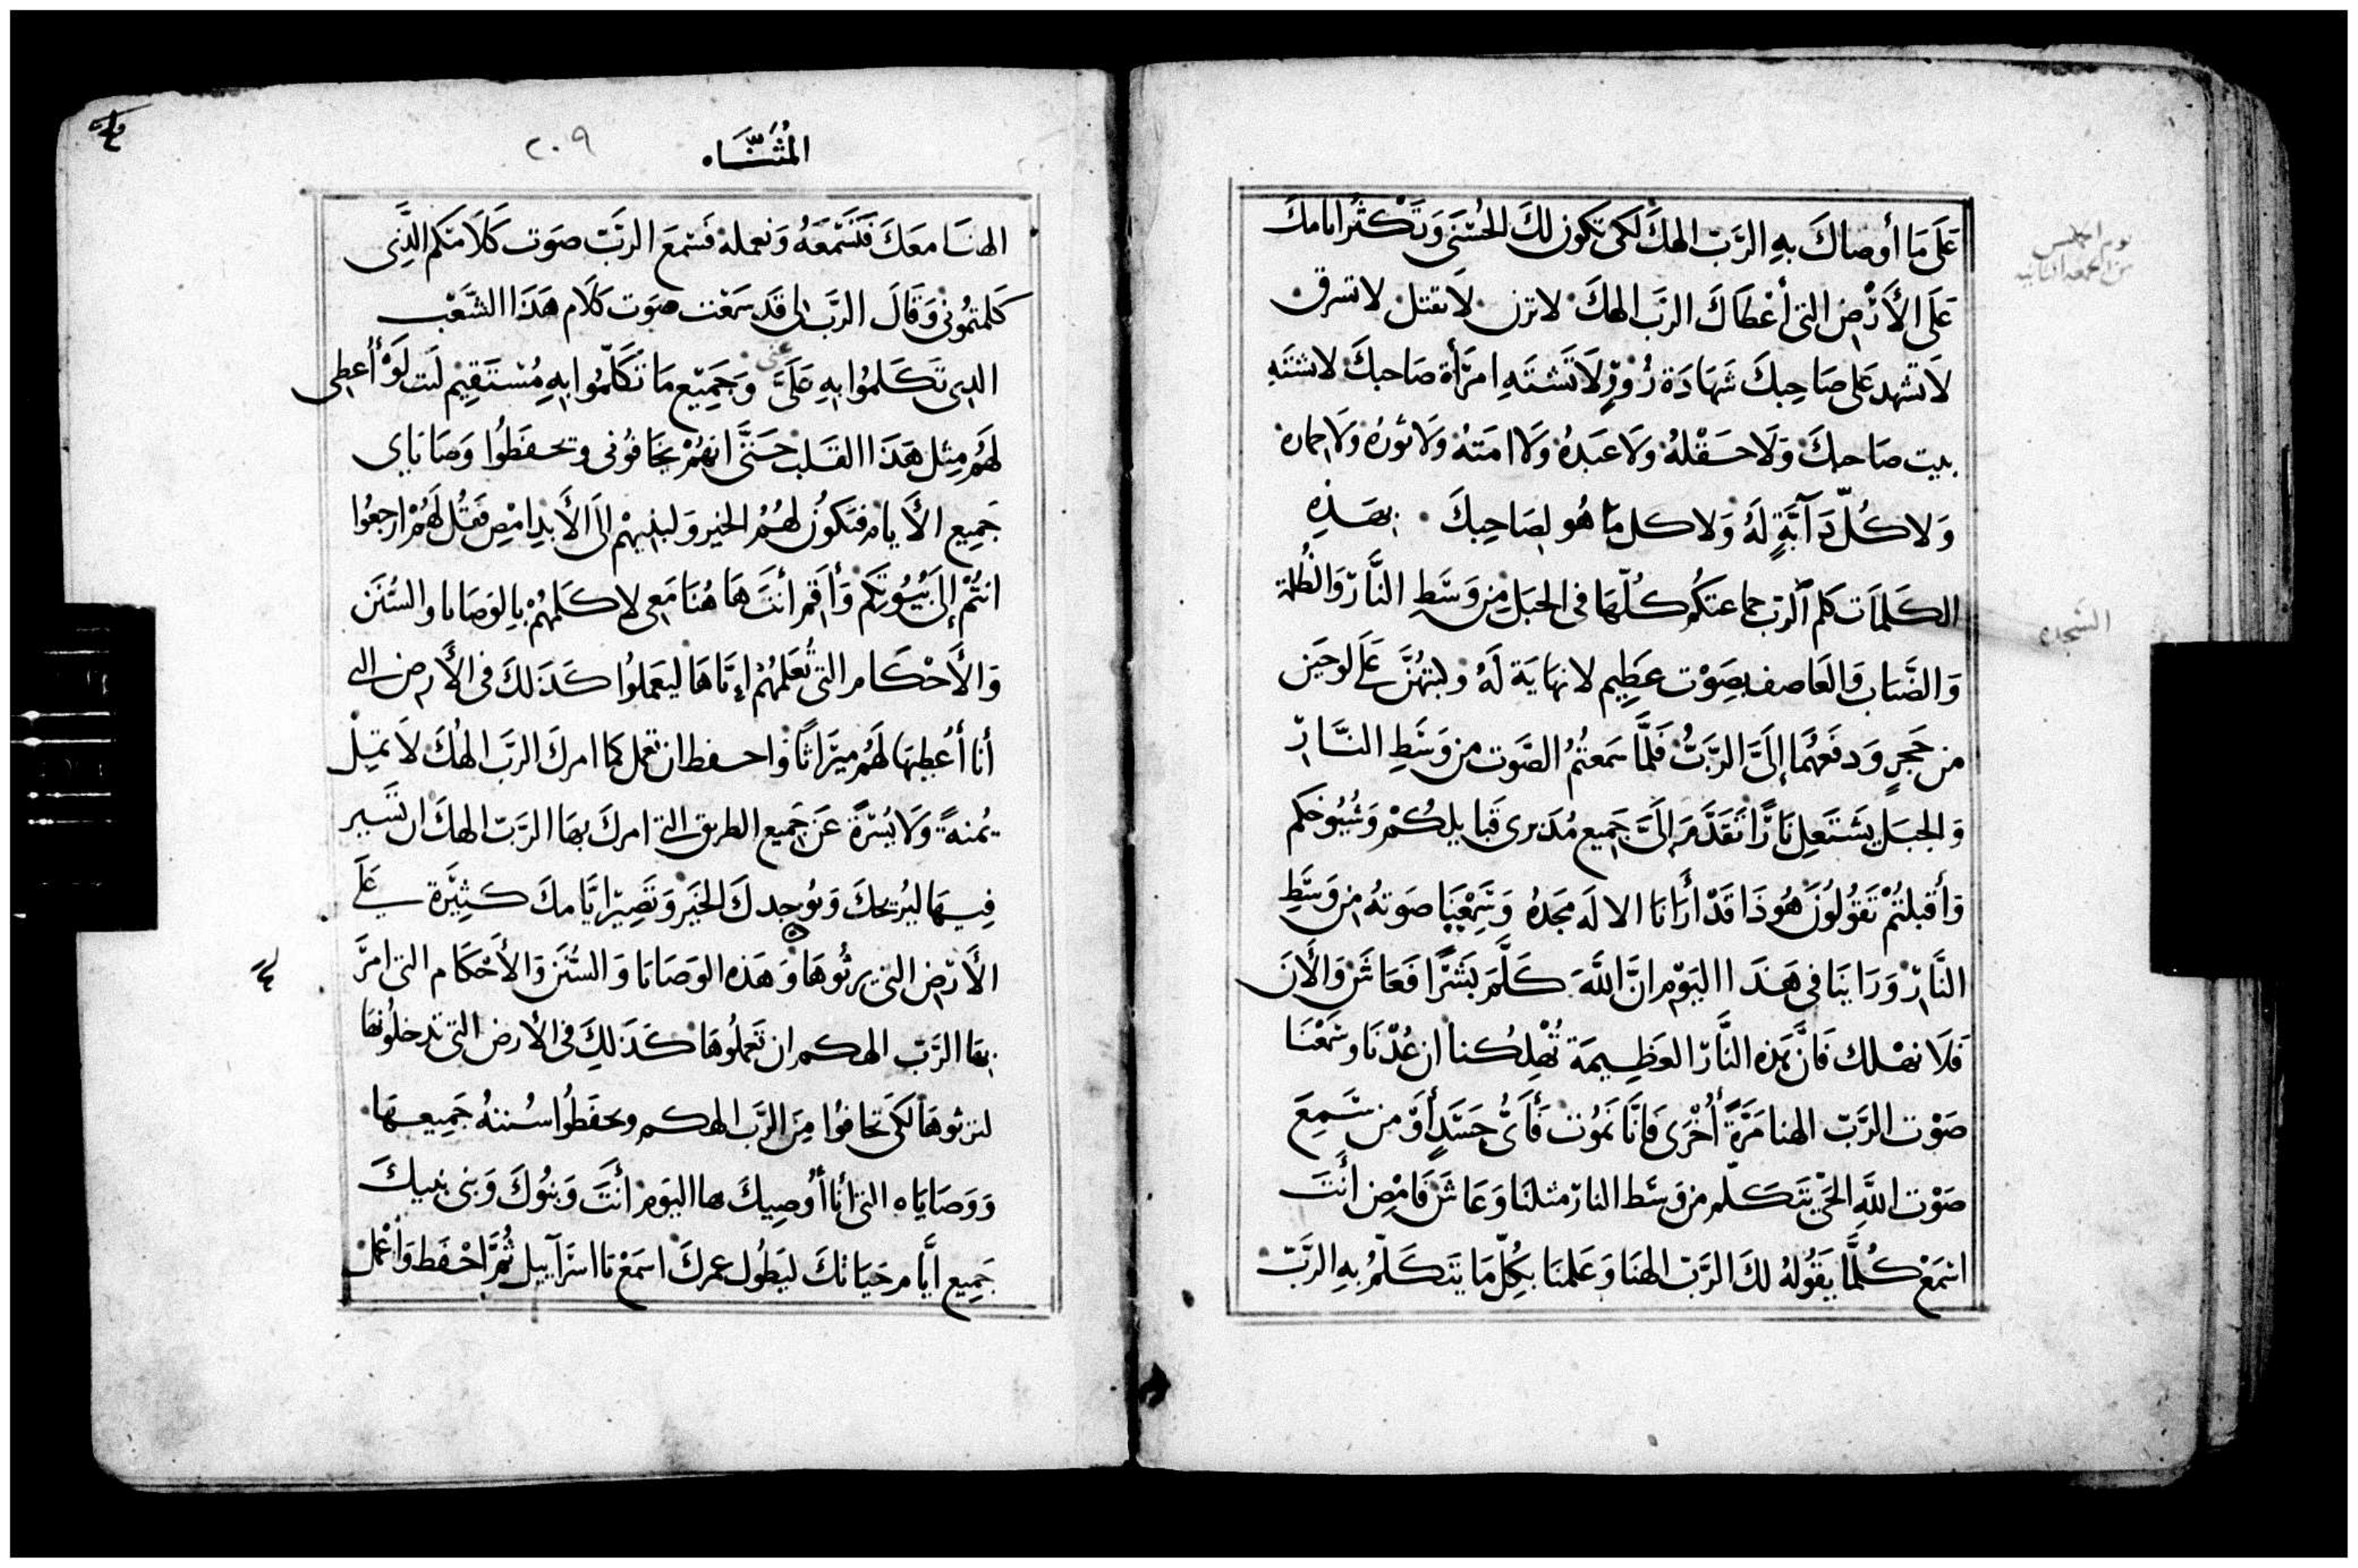 عَلَى مَا أوصاكَ بهِ الرَّبّ الهكَ لَكى تكون لكَ الحُسْنَى وَتَكْثُر ايامكَ
عَلَى الأَرْضِ التى أعْطَاكَ الرَّب الهكَ لاتزن لا تقتل لا تسرق
لَا تشهد عَلى صَاحِبكَ شَهَادَة زُوْرٍ لَا تَشتَهِ امرَأة صَاحبكَ لا تشتَهِ
بيت صَاحبكَ وَلَا حَقْلهُ وَلاَ عَبَدهُ وَلَا امَتهُ وَلَا ثورهُ وَلا حماره
وَلا كُلّ دَآبَّةٍ لَهُ وَلا كل مَا هُو لصَاحِبكَ بهَذِهِ
الكَلمَات كلم الرّب جماعتكُم كُلّهَا فى الجبَل مِن وَسَطِ النَّار وَالظُلمة
وَالضَّباب وَالعَاصف بصِوْت عظِيم لا نهَايَة لَهُ وكبتهُنَّ عَلَى لوحَين
من حَجرٍ وَدفعَهُمَا إلَىَّ الرَّبُّ فَلَمَّا سَمعتُمُ الصَّوت من وَسَطِ النَّارّ
وَالجبَل يشتَعِل نَارًا تقَدَّمَ إلَىَّ جَميع مُدَبرى قبَايلكُمْ وَشُيُوخكم
وَأقبلتُمْ تَقُولُونَ هُوذَا قَدْ أرَانَا الالَه مَجدهُ وَسَمِعْنَا صَوتهُ مِن وَسَطِ
النَّارّ وَرَاينَا فى هَذَا اليَوْم انَّ اللَّهَ كَلَّمَ بَشَرًا فعَاشَ وَالأَنَ
فَلَا نهْلك فَانَّ هَذه النَّارّ العَظِيمَة تُهْلِكُنا ان عُدْنَا وسَمعْنَا
صَوْت الرَّبّ الهنا مَرَّةً أُخْرَى فَانَّا نَمُوت فَأَىُّ جَسَدٍ أوْ مِن سَمِعَ
صَوْت اللَّهِ الحَىّ يتَكَلّم من وَسَط النارّ مثلنَا وَعَاشَ فَامْضِ أَنتَ
اسْمَعْ كُلَّمَا يقَوُلهُ لكَ الرَّبّ الهنَا وَعَلمنَا بكُلّ مَا يتَكَلّمُ بهِ الرَّبّ
السَّجده
المُثَنَّاه
٢٠٩
الهنَا معَكَ فَنَسْمَعَهُ وَنعمله فَسَمعَ الرَّبّ صوَت كَلَامَكم الَّذِى
كلمتمُونى وَقَالَ الرَّب لى قَد سَمعْت صوَت كَلَام هَذَا الشَّعْب
الذِى تَكَلمُوا بهِ عَلَىَّ وَجَمِيْع مَا تَكَلّمُوا بهِ مُسْتَقِيم لَو أُعطى
لَهُم مِثل هَذَا القَلب حَتَّى انهُمْ يخَافُونى وَيحفَظُوا وَصَايَاى
جَمِيع الأَيام فتكوُن لهُمُ الخير وَلبنيهمْ الَى الأَبدِ امْضِ فَقُل لَهُمْ ارجعُوا
انتُمْ إلَى بُيُوتكُم وَأَقم أنتَ هَا هُنَا مَعى لاكَلمهُمْ بالوَصَايا وَالسُّنَن
وَالأَحْكَام التى تُعَلمهُمْ إيَّاهَا ليَعمَلوُا كَذَلكَ فى الأَرض التى
أنا أُعطِيهَا لَهُم مِيرَاثًا وَاحفظ ان تعمل كما امركَ الرَّب الهُكَ لاَ تمِيْل
يُمنةً وَلَا يُسْرَةً عَن جَميع الطريق التى امركَ بهَا الرَّبّ الهكَ ان تسَير
فيهَا ليُريحكَ وَيُوجد لكَ الخيَر وَتَصِيْر ايَّامكَ كثِيْرَة عَلَى
الأَرْض التى يرثُوهَا وَهَذه الوَصَايَا وَالسُّنَن وَالأَحْكَام التى امرَ
بهَا الرَّبّ الهكم ان تَعمَلُوهَا كَذَلكَ فى الأَرض التى تدخلُونهَا
لترثوهَا لكَى تخَافوُا مِنَ الرَّب الهكم وَيحفَظُوا سُننهُ جَمِيعهَا
وَوَصَايَاه التى أنا أُوصِيكَ بها اليَوم أَنتَ وَبنُوكَ وَبنى بنيكَ
جَمِيع ايَّام حَياتكَ ليَطُول عمركَ اسمَعْ يَا اسرَآييل ثُمَّ احْفظ وَأعْمل